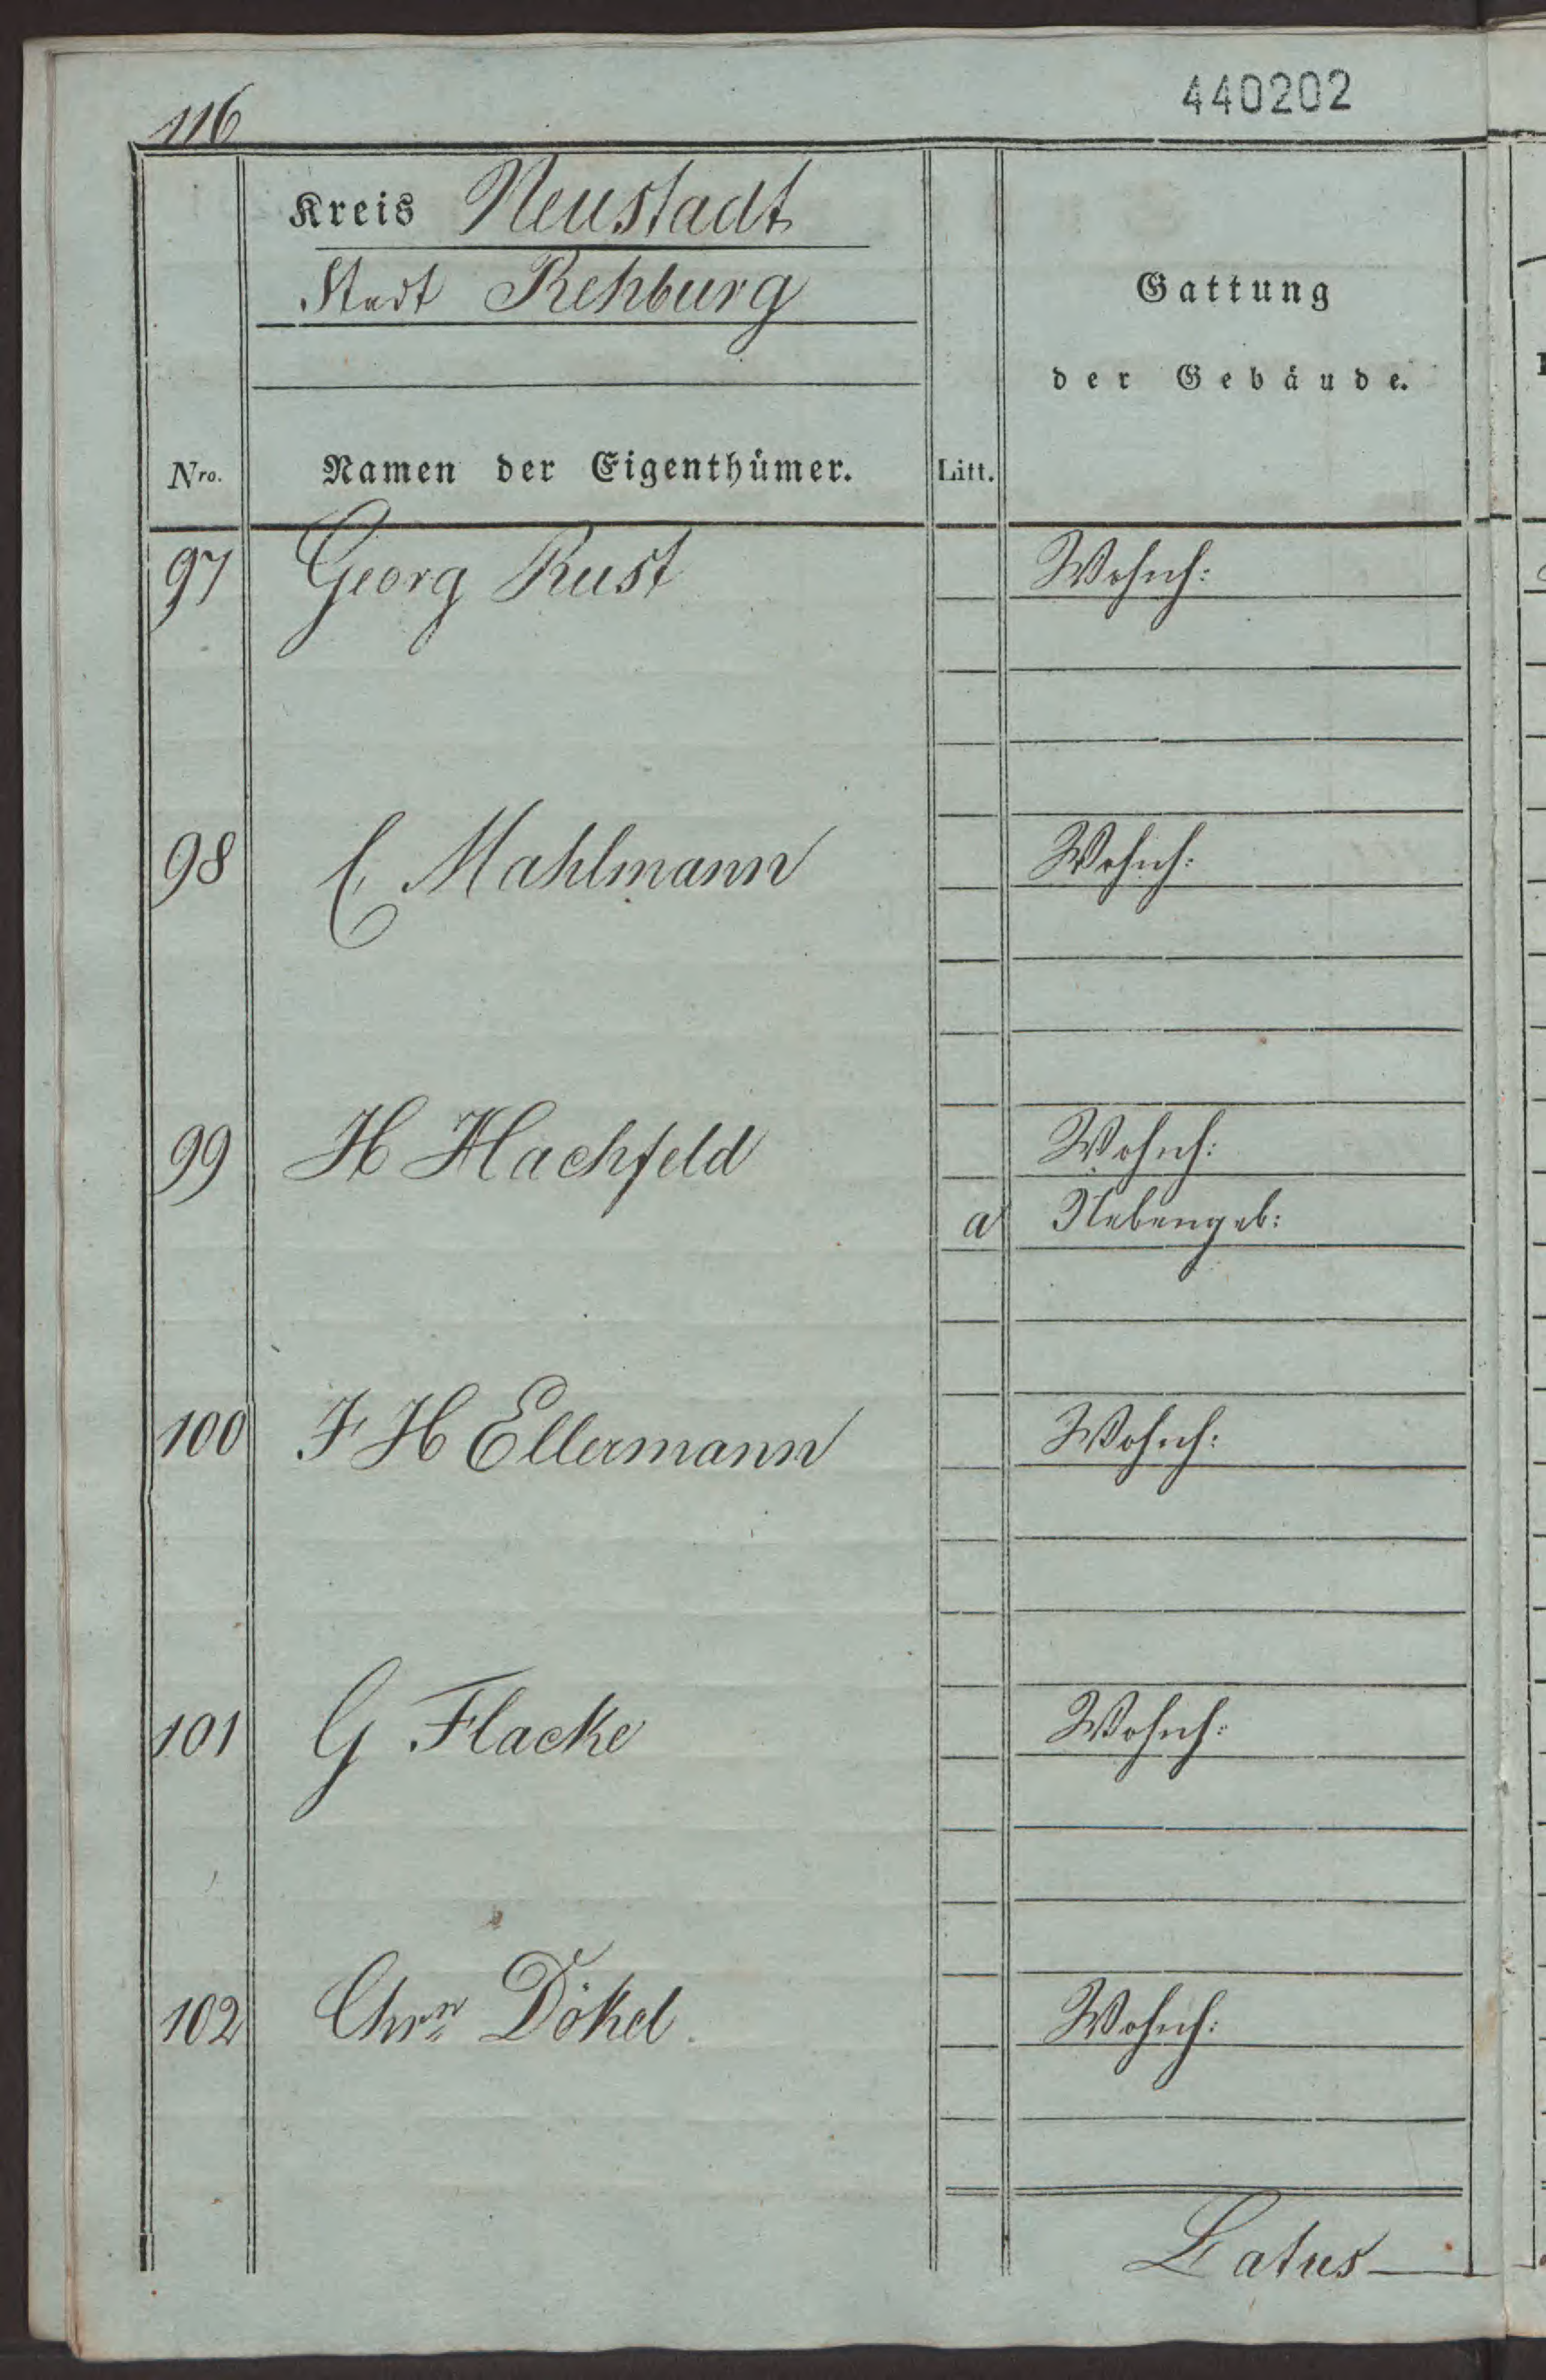 116
440202
Kreis Neustadt
Stadt Rehburg
Gattung
der Gebäude.
Nro. Namen der Eigenthümer. Litt.
97 Georg Rust Wohnh:
98 C Mahlmann Wohnh:
99 H Hachfeld Wohnh:
a Nebengeb:
100 F H Ellermann Wohnh:
101 G Flacke Wohnh:
102 Chrn Dökel Wohnh:
Latus